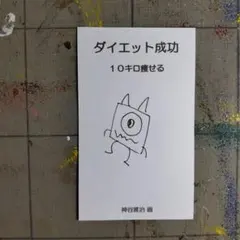 ダイエット成功
１０キロ痩せる
神谷將治 画